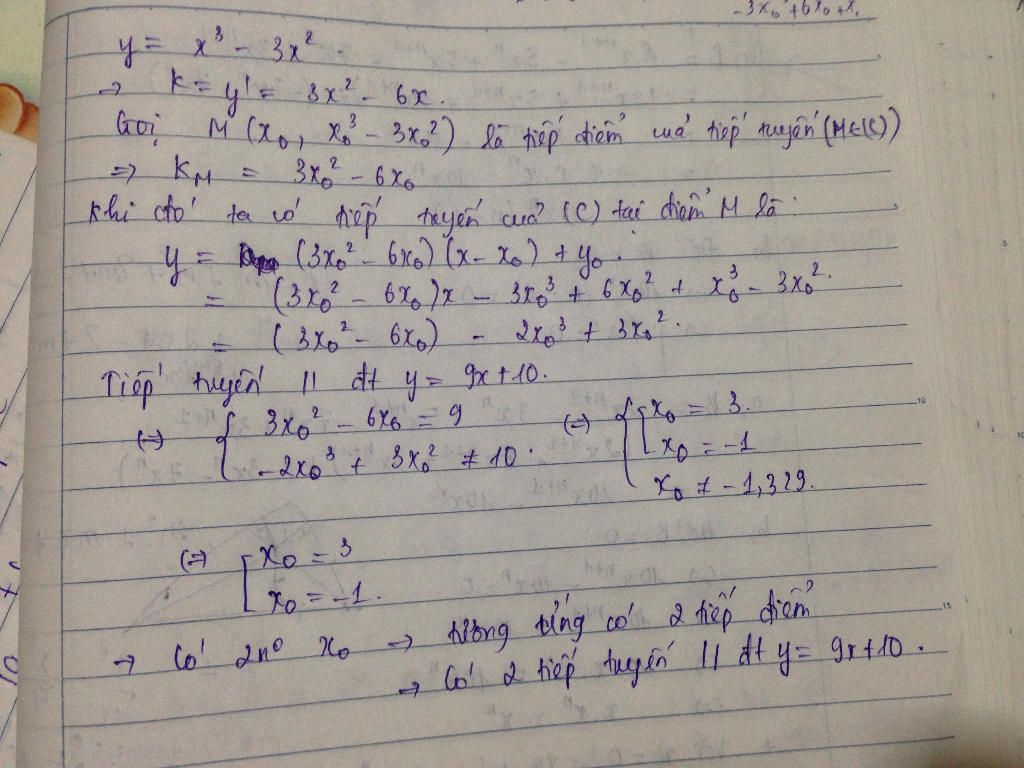 -3x₀² + 6x₀ + x
y = x³ - 3x²
→ K = y' = 3x² - 6x.
Gọi M (x₀, x₀³ - 3x₀²) là tiếp điểm của tiếp tuyến (M∈(C))
=> K_M = 3x₀² - 6x₀
Khi đó ta có tiếp tuyến của (C) tại điểm M là:
y = (3x₀² - 6x₀)(x - x₀) + y₀.
= (3x₀² - 6x₀)x - 3x₀³ + 6x₀² + x₀³ - 3x₀².
= (3x₀² - 6x₀) - 2x₀³ + 3x₀².
Tiếp tuyến // đt y = 9x + 10.
(=) { 3x₀² - 6x₀ = 9 (=) { [ x₀ = 3.
-2x₀³ + 3x₀² ≠ 10. x₀ = -1
x₀ ≠ -1,329.
(=) [ x₀ = 3
x₀ = -1.
→ Có 2n⁰ x₀ → tương ứng có 2 tiếp điểm
→ Có 2 tiếp tuyến // đt y = 9x + 10.
5
10
15